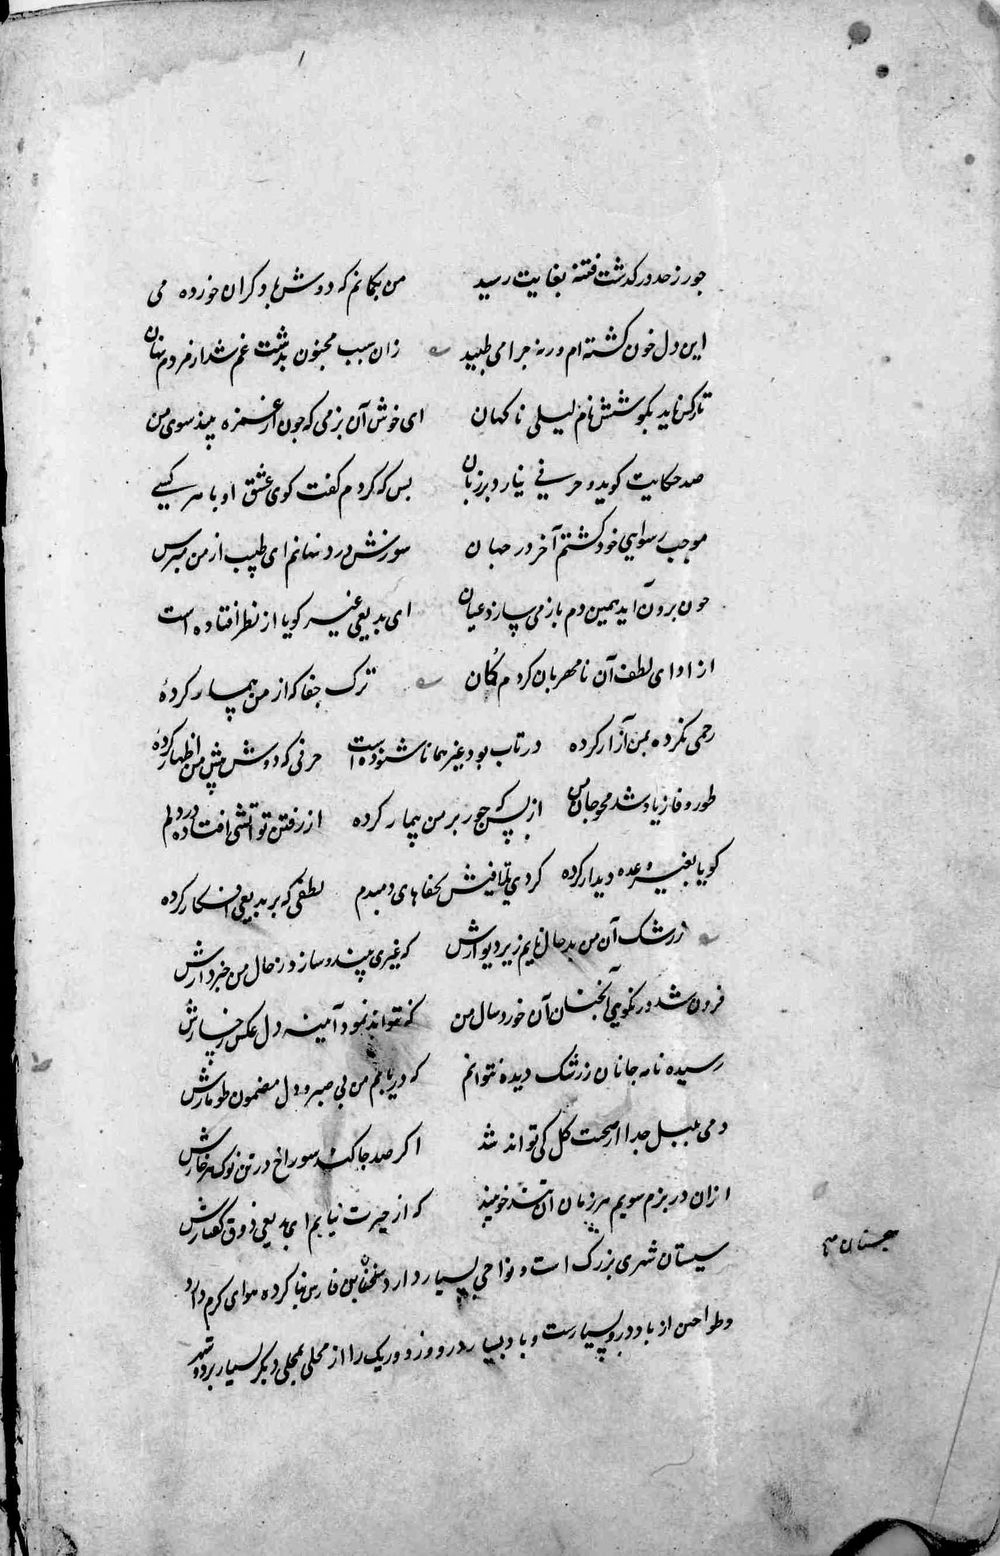 جور ز حد در گذشت فتنه بغایت رسید من بگمانم که دوش با دگران خورده می
این دل خون گشته ام ورنه چرا می طپید زان سبب مجنون بدشت غم شد از مردم نهان
تا رکس ناید بگوشش نام لیلی ناگهان ای خوش آن بزمی که چون از غمزه بیند سوی من
صد حکایت گوید و حرفی نیارد بر زبان بس که کردم گفت گوی عشق او با هر کسی
موجب رسوایی خود گشتم آخر در جهان سوزش درد نهانم ای طبیب از من مپرس
چون برون آید همین دم باز می سازد عیان ای بدیعی غیر گویا از نظر افتاده است
از ادای لطف آن نامهربان کردم گمان ترک جفا که از من بیمار کردهٔ
رحمی نکرده بمن آزار کرده در تاب بود غیر همانا شنوده است حرفی که دوش پیش من اظهار کردهٔ
طور وفا زیاد شد از بس که جور بر من بیمار کرده از رفتن تو آتشی افتاده در دلم
گویا بغیر وعده دیدار کرده کردی تلافیش بجفاهای دمبدم لطفی که بر بدیعی افکار کرده
ز رشک آن من بد حال نایم زیر دیوارش که غیری بیند و سازد ز حال من خبردارش
فزون شد در نکویی آنچنان آن خورد سال من که نتواند نمود آیینه دل عکس رخسارش
رسیده نامه جانان ز رشک دیده نتوانم که دریابم من بی صبر و دل مضمون طومارش
دمی بلبل جدا از صحبت گل کی تواند شد اگر صد جا کند سوراخ در تن نوک هر خارش
ازان در بزم سویم هر زمان آن تندخو بیند که از حیرت نیابم ای بدیعی ذوق گفتارش
سیستان شهری بزرگ است و نواحی بسیار دارد فارس بنا کرده هوای گرم دارد
سجستان
وطواحین از باد در و بسیارست و باد بسیار درو وزد و ریک را از محلی بمحلی دیگر بسیار برده